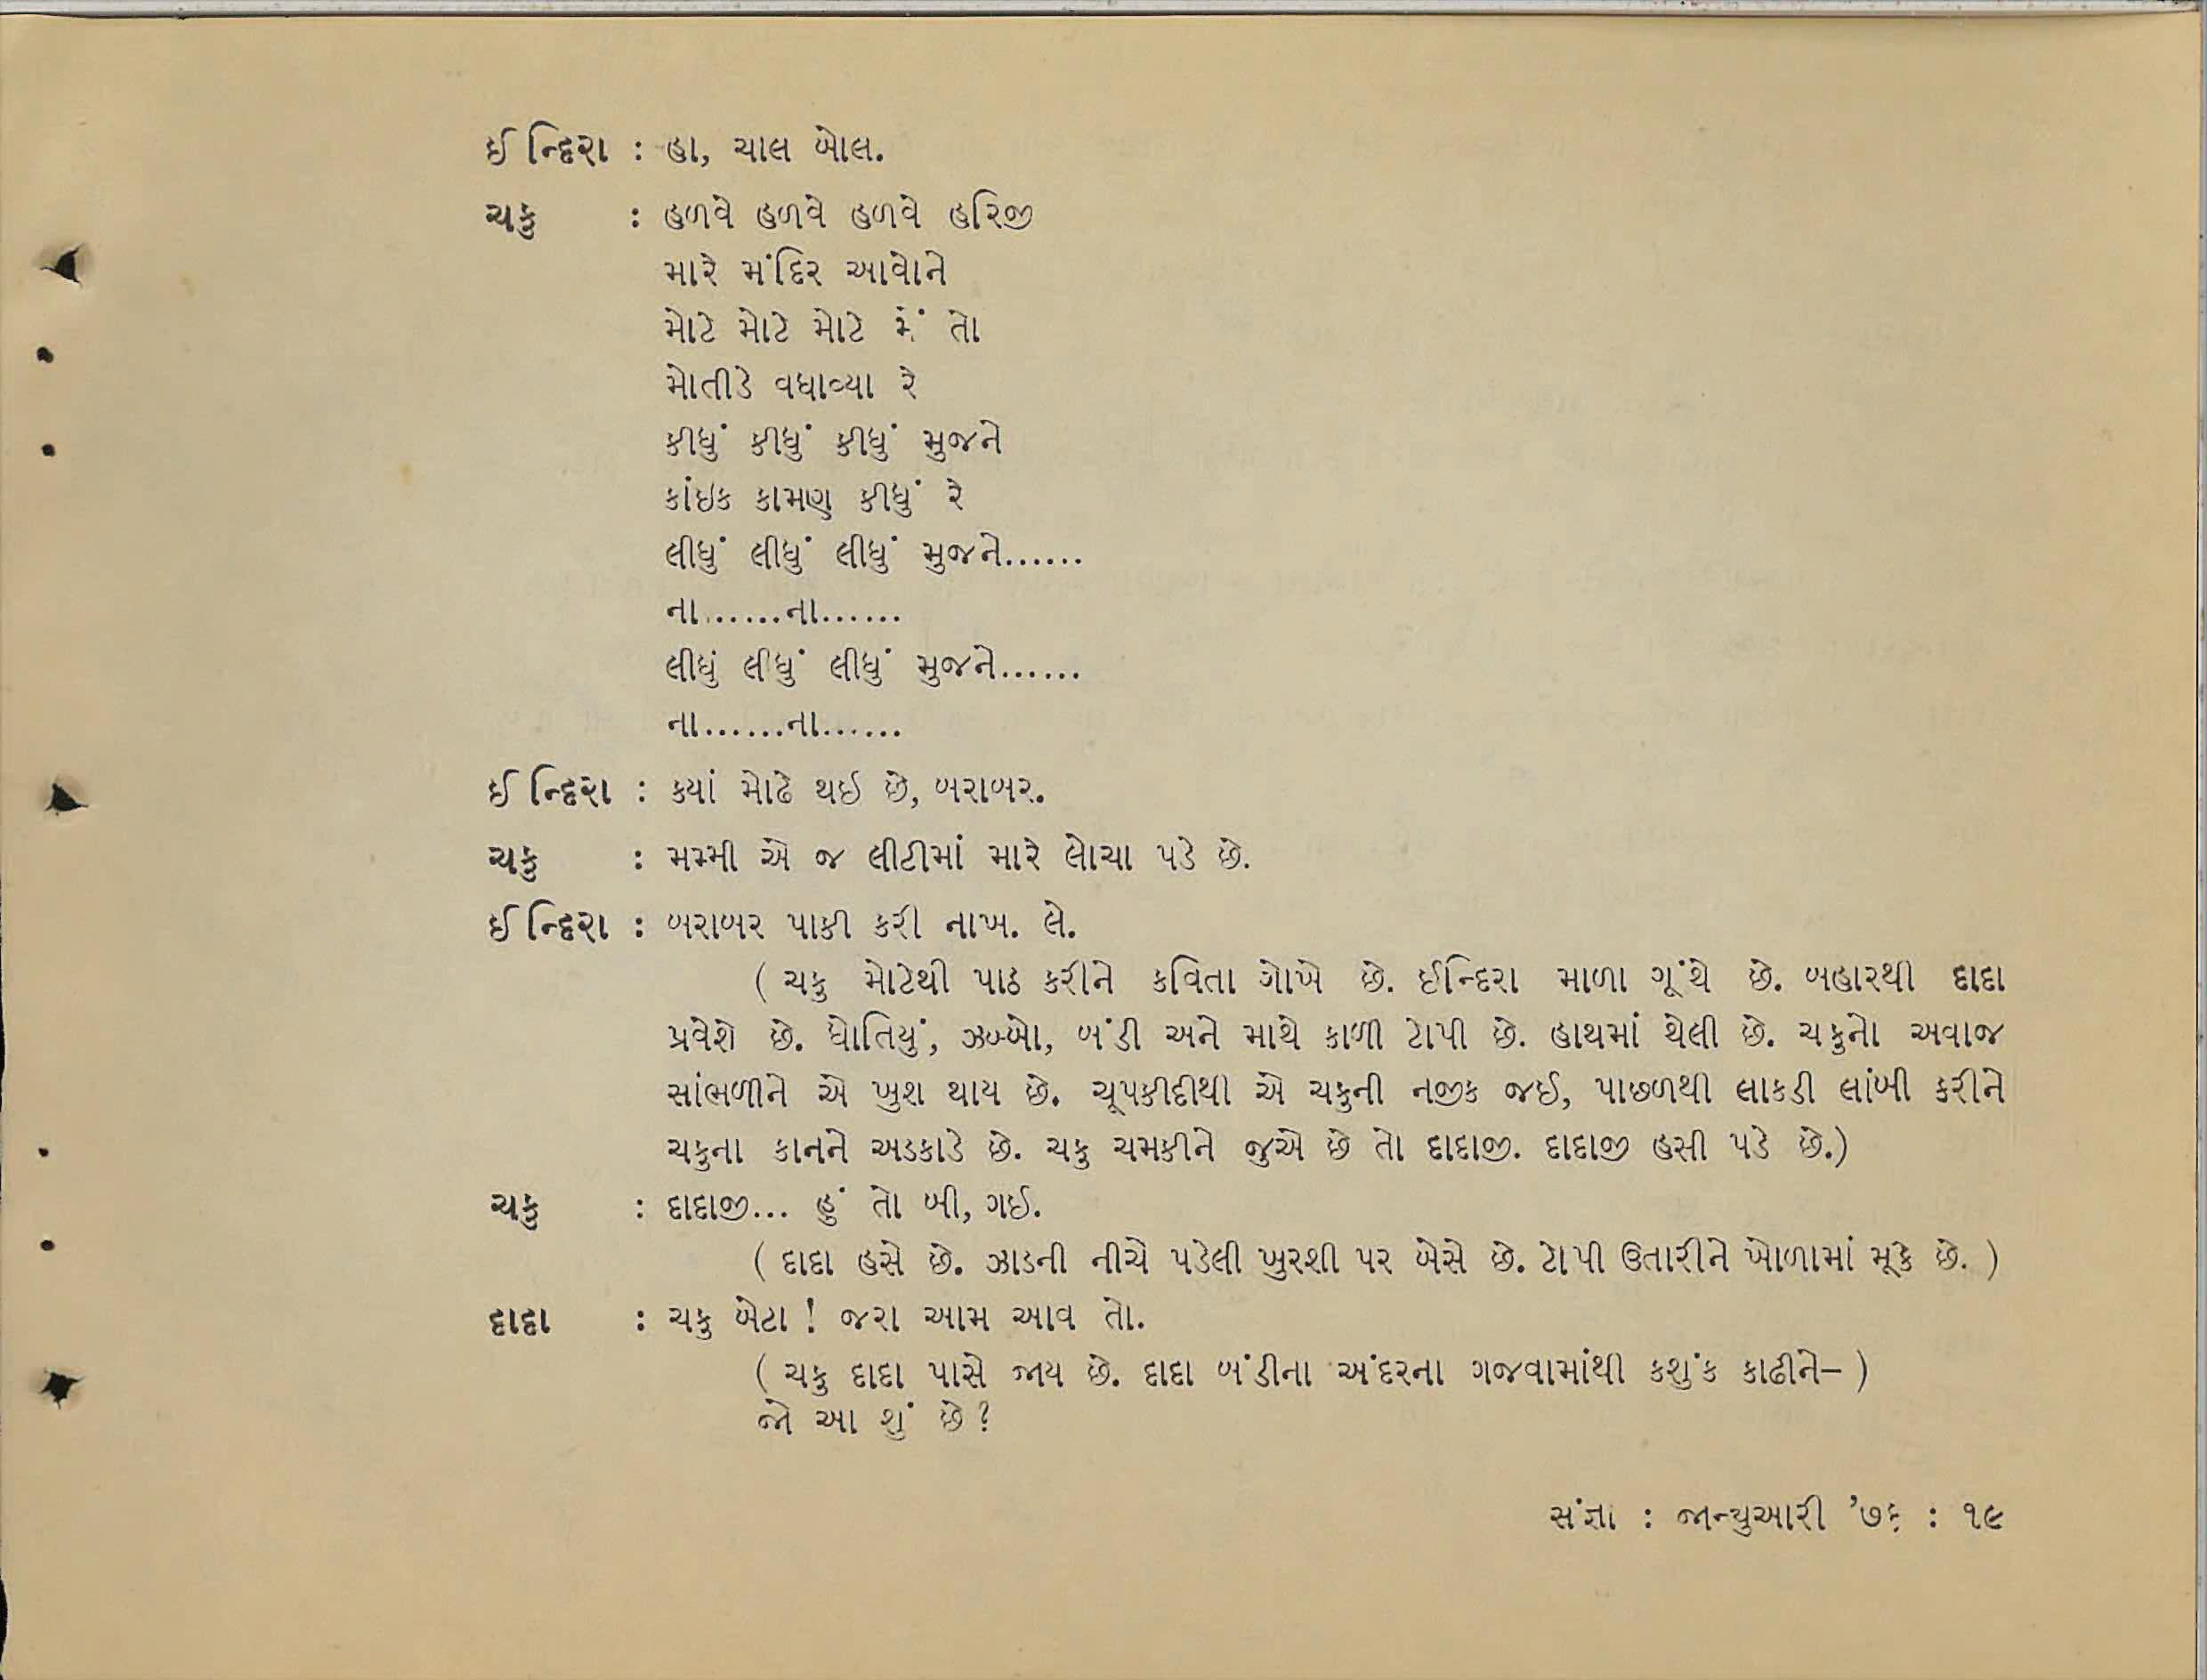 ઈન્દિરા : હા, ચાલ બોલ.
ચકુ : હળવે હળવે હળવે હરિજી
મારે મંદિર આવોને
મોટે મોટે મોટે મેં તો
મોતીડે વધાવ્યા રે
કીધું કીધું કીધું મુજને
કાંઇક કામણ કીધું રે
લીધું લીધું લીધું મુજને......
ના......ના......
લીધું લીધું લીધું મુજને......
ના......ના......
ઈન્દિરા : કયાં મોઢે થઇ છે, બરાબર.
ચકુ : મમ્મી એ જ લીટીમાં મારે લોચા પડે છે.
ઈન્દિરા : બરાબર પાકી કરી નાખ. લે.
( ચકુ મોટેથી પાઠ કરીને કવિતા ગોખે છે. ઈન્દિરા માળા ગૂંથે છે. બહારથી દાદા
પ્રવેશે છે. ધોતિયું, ઝબ્બો, બંડી અને માથે કાળી ટોપી છે. હાથમાં થેલી છે. ચકુનો અવાજ
સાંભળીને એ ખુશ થાય છે. ચૂપકીદીથી એ ચકુની નજીક જઈ, પાછળથી લાકડી લાંબી કરીને
ચકુના કાનને અડકાડે છે. ચકુ ચમકીને જુએ છે તો દાદાજી. દાદાજી હસી પડે છે.)
ચકુ : દાદાજી... હું તો બી, ગઈ.
( દાદા હસે છે. ઝાડની નીચે પડેલી ખુરશી પર બેસે છે. ટોપી ઉતારીને ખોળામાં મૂકે છે. )
દાદા : ચકુ બેટા ! જરા આમ આવ તો.
( ચકુ દાદા પાસે જાય છે. દાદા બંડીના અંદરના ગજવામાંથી કશુંક કાઢીને– )
જો આ શું છે?
સંજ્ઞા : જાન્યુઆરી ’૭૬ : ૧૯